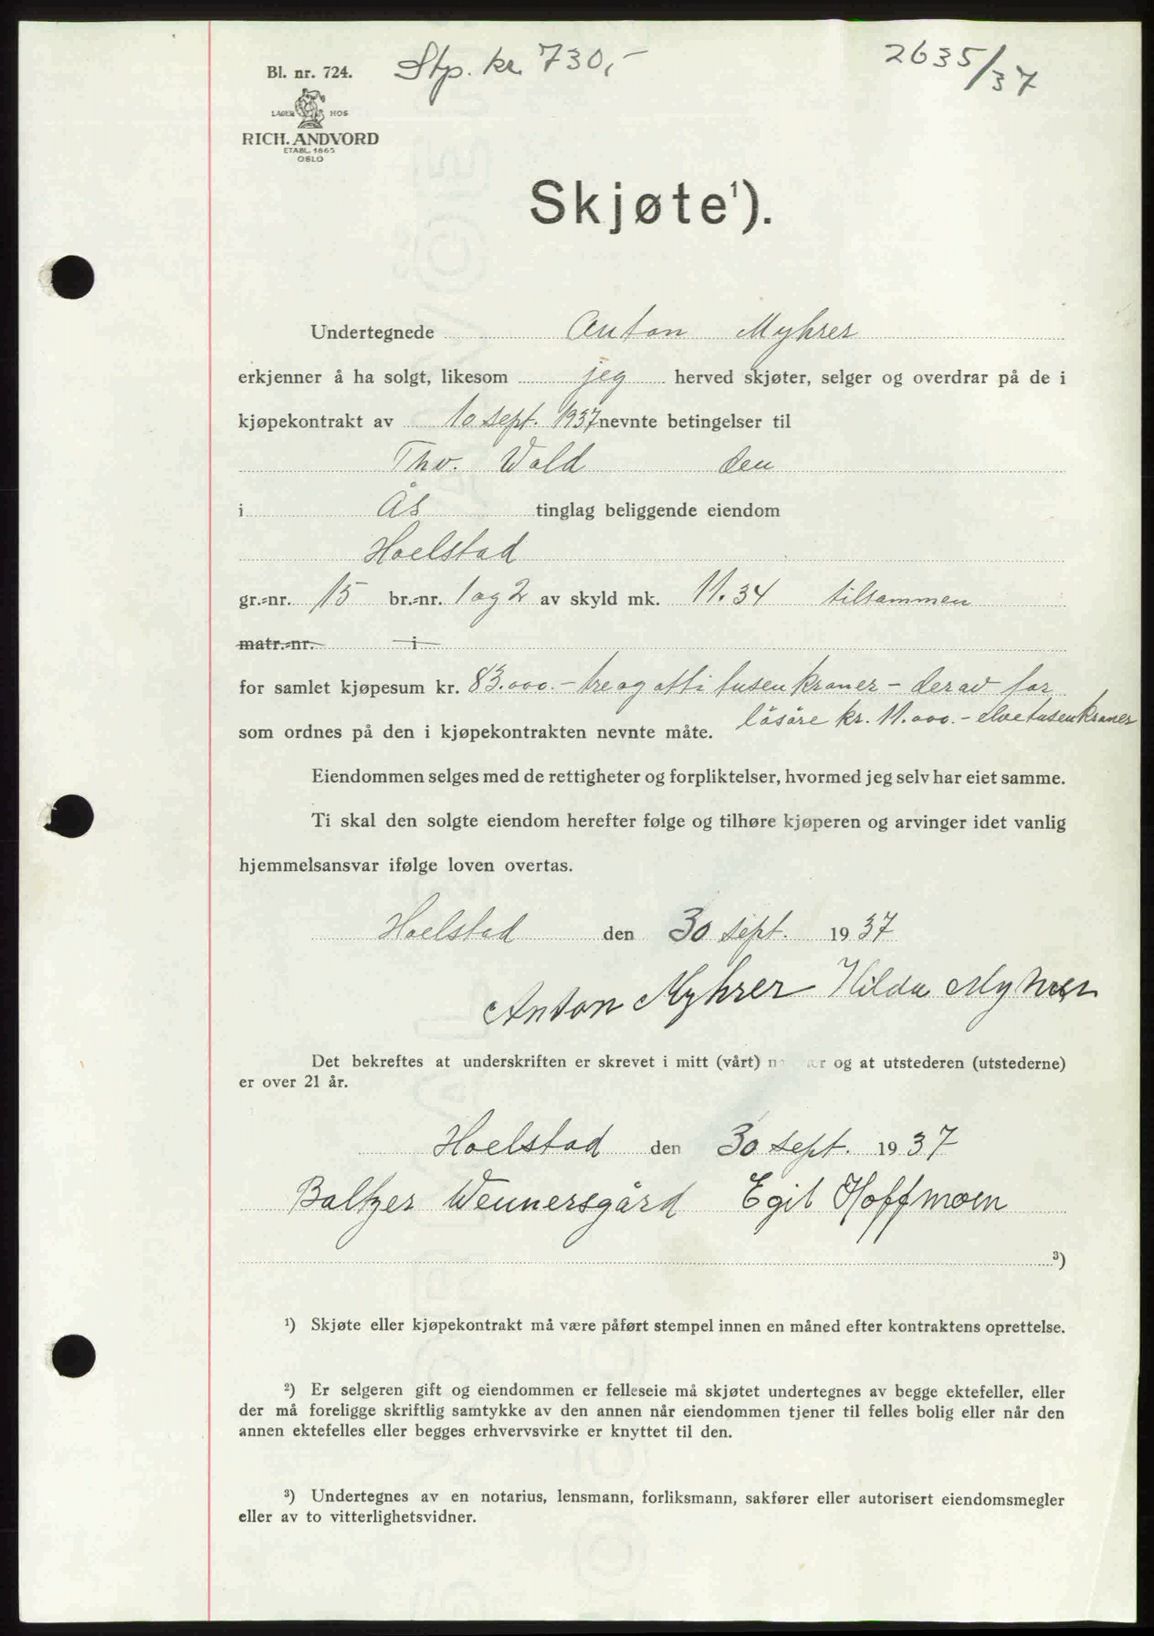 Stp. kr. 730,-
2635/37
Bl. nr. 724.
LAGER HOS
RICH. ANDVORD
ETABL. 1865
OSLO
Skjøte¹).
Undertegnede Anton Myhrer
erkjenner å ha solgt, likesom jeg herved skjøter, selger og overdrar på de i
kjøpekontrakt av 10 sept. 1937 nevnte betingelser til
Thv. Wold den
i Ås tinglag beliggende eiendom
Hoelstad
gr.-nr. 15 br.-nr. 1 og 2 av skyld mk. 11.34 tilsammen
matr.-nr. i
for samlet kjøpesum kr. 83.000.- tre og otti tusen kroner - derav for
løsøre kr. 11.000.- elve tusen kroner
som ordnes på den i kjøpekontrakten nevnte måte.
Eiendommen selges med de rettigheter og forpliktelser, hvormed jeg selv har eiet samme.
Ti skal den solgte eiendom herefter følge og tilhøre kjøperen og arvinger idet vanlig
hjemmelsansvar ifølge loven overtas.
Hoelstad den 30 sept. 1937
Anton Myhrer Hilda Myhrer
Det bekreftes at underskriften er skrevet i mitt (vårt) og at utstederen (utstederne)
er over 21 år.
Hoelstad den 30 sept. 1937
Baltzer Wennersgård Egil Hoffmoen
³)
¹) Skjøte eller kjøpekontrakt må være påført stempel innen en måned efter kontraktens oprettelse.
²) Er selgeren gift og eiendommen er felleseie må skjøtet undertegnes av begge ektefeller, eller
der må foreligge skriftlig samtykke av den annen når eiendommen tjener til felles bolig eller når den
annen ektefelles eller begges erhvervsvirke er knyttet til den.
³) Undertegnes av en notarius, lensmann, forliksmann, sakfører eller autorisert eiendomsmegler
eller av to vitterlighetsvidner.